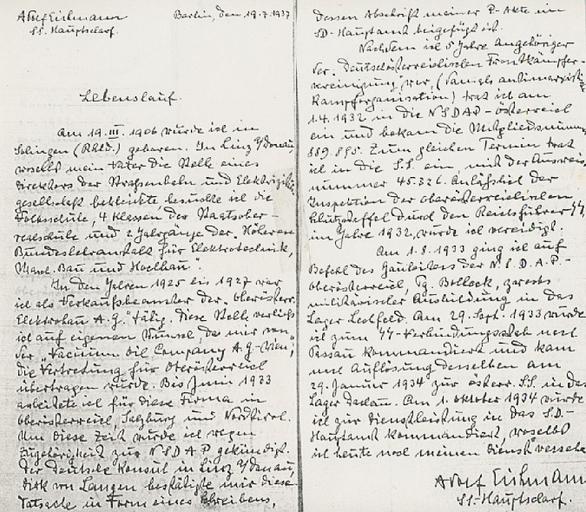 Adolf Eichmann
SS. Hauptscharf.
Berlin, den 19.7.1937
Lebenslauf.
Am 19. III. 1906 wurde ich in
Solingen (Rhld.) geboren. In Linz a/Donau,
woselbst mein Vater die Stelle eines
Direktors der Strassenbahn und Elektrizitäts
gesellschaft bekleidete besuchte ich die
Volksschule, 4 Klassen der Staatsober-
realschule und 2 Jahrgänge der Höheren
Bundeslehranstalt für Elektrotechnik,
Masch. Bau und Hochbau.
In den Jahren 1925 bis 1927 war
ich als Verkaufsbeamter der "Oberösterr.
Elektrobau A.G." tätig. Diese Stelle verliess
ich auf eigenen Wunsch, da mir von
der "Vacuum Oil Company A.G.-Wien",
die Vertretung für Oberösterreich
übertragen wurde. Bis Juni 1933
arbeitete ich für diese Firma in
Oberösterreich, Salzburg und Nordtirol.
Um diese Zeit wurde ich wegen
Zugehörigkeit zur NSDAP gekündigt.
Der Deutsche Konsul in Linz a/Donau,
Dirk von Langen bestätigte mir diese
Tatsache in Form eines Schreibens,
dessen Abschrift meiner P-Akte im
SD-Hauptamt beigefügt ist.
Nachdem ich 5 Jahre Angehöriger
der "Deutschösterreichischen Frontkämpfer-
vereinigung" war, (damals antimarxist.
Kampforganisation) trat ich am
1.4.1932 in die NSDAP-Österreich
ein und bekam die Mitgliedsnummer
889.895. Zum gleichen Termin trat
ich in die SS ein mit der Ausweis-
nummer 45.326. Anlässlich der
Inspektion der oberösterreichischen
Schutzstaffel durch den Reichsführer SS
im Jahre 1932, wurde ich vereidigt.
Am 1.8.1933 ging ich auf
Befehl des Gauleiters der N.S.D.A.P.-
Oberösterreich, Pg. Bolleck, zwecks
militärischer Ausbildung in das
Lager Lechfeld. Am 29. Sept. 1933 wurde
ich zum SS-Verbindungsstab nach
Passau kommandiert und kam
nach Auflösung desselben am
29. Januar 1934 zur österr. SS. in das
Lager Dachau. Am 1. Oktober 1934 wurde
ich zur Dienstleistung in das S.D.-
Hauptamt kommandiert, woselbst
ich heute noch meinen Dienst versehe.
Adolf Eichmann
SS-Hauptscharf.